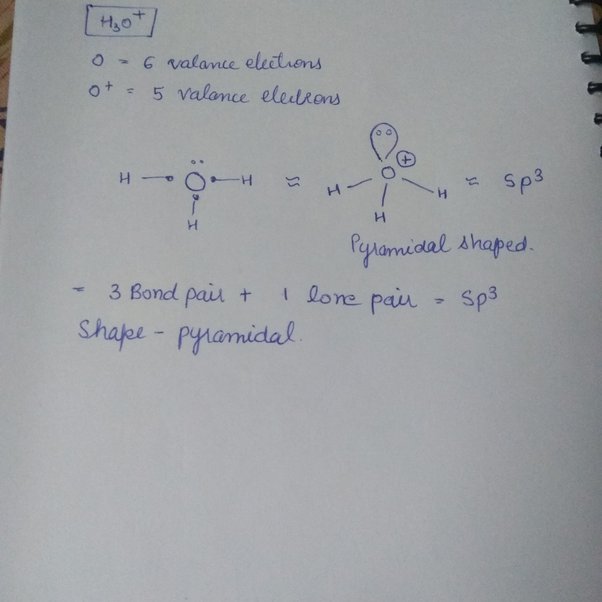 H₃O⁺
O = 6 valance electrons
O⁺ = 5 valance electrons
H — O — H ≈ H O ⊕ H ≈ Sp³
H H
Pyramidal shaped.
= 3 Bond pair + 1 lone pair = Sp³
Shape - pyramidal.